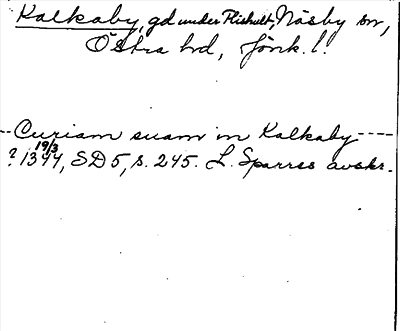 Kalkaby, gd under Flishult, Näsby sn,
Östra hd, Jönk. l.
-- Curiam suam in Kalkaby ----
? 19/3 1344, SD 5, s. 245. L. Sparres avskr.